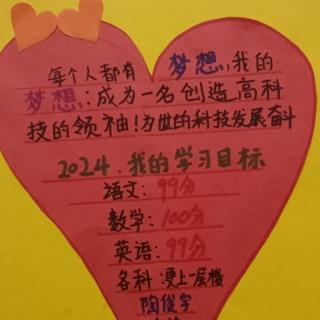 每个人都有 梦想,我的
梦想,:成为一名创造高科
技的领袖!为世的科技发展奋斗
2024.我的学习目标
语文:99分
数学:100分
英语:99分
各科:更上一层楼
陶俊宇